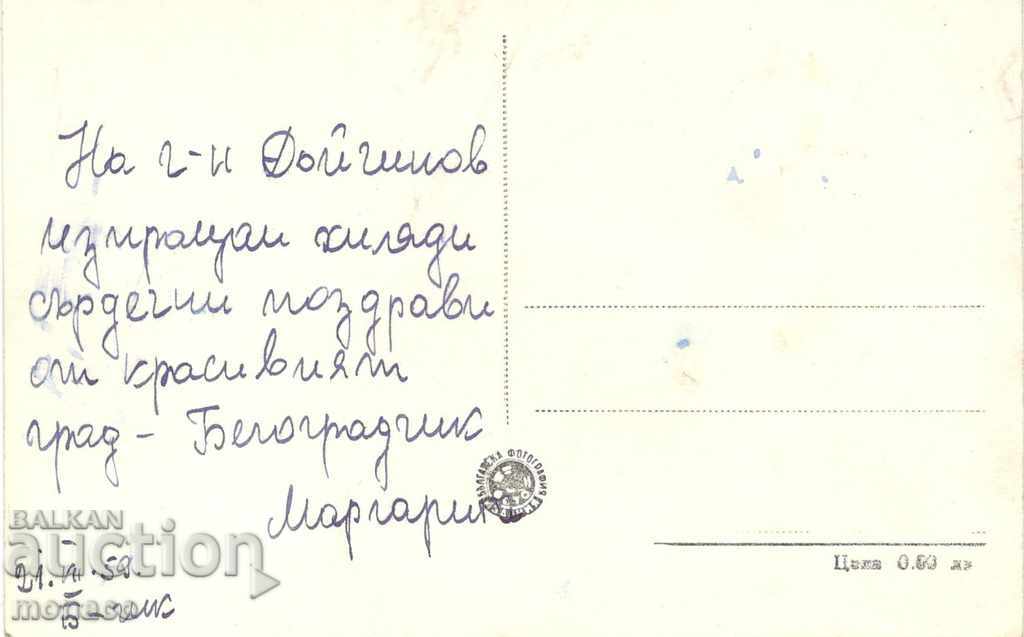 На г-н Дойчинов
изпращам хиляди
сърдечни поздрави
от красивият
град - Белоградчик
Маргарита
21. VII. 59.
Б-чик
БЪЛГАРСКА ФОТОГРАФИЯ
Цена 0.80 лв
BALKAN
auction